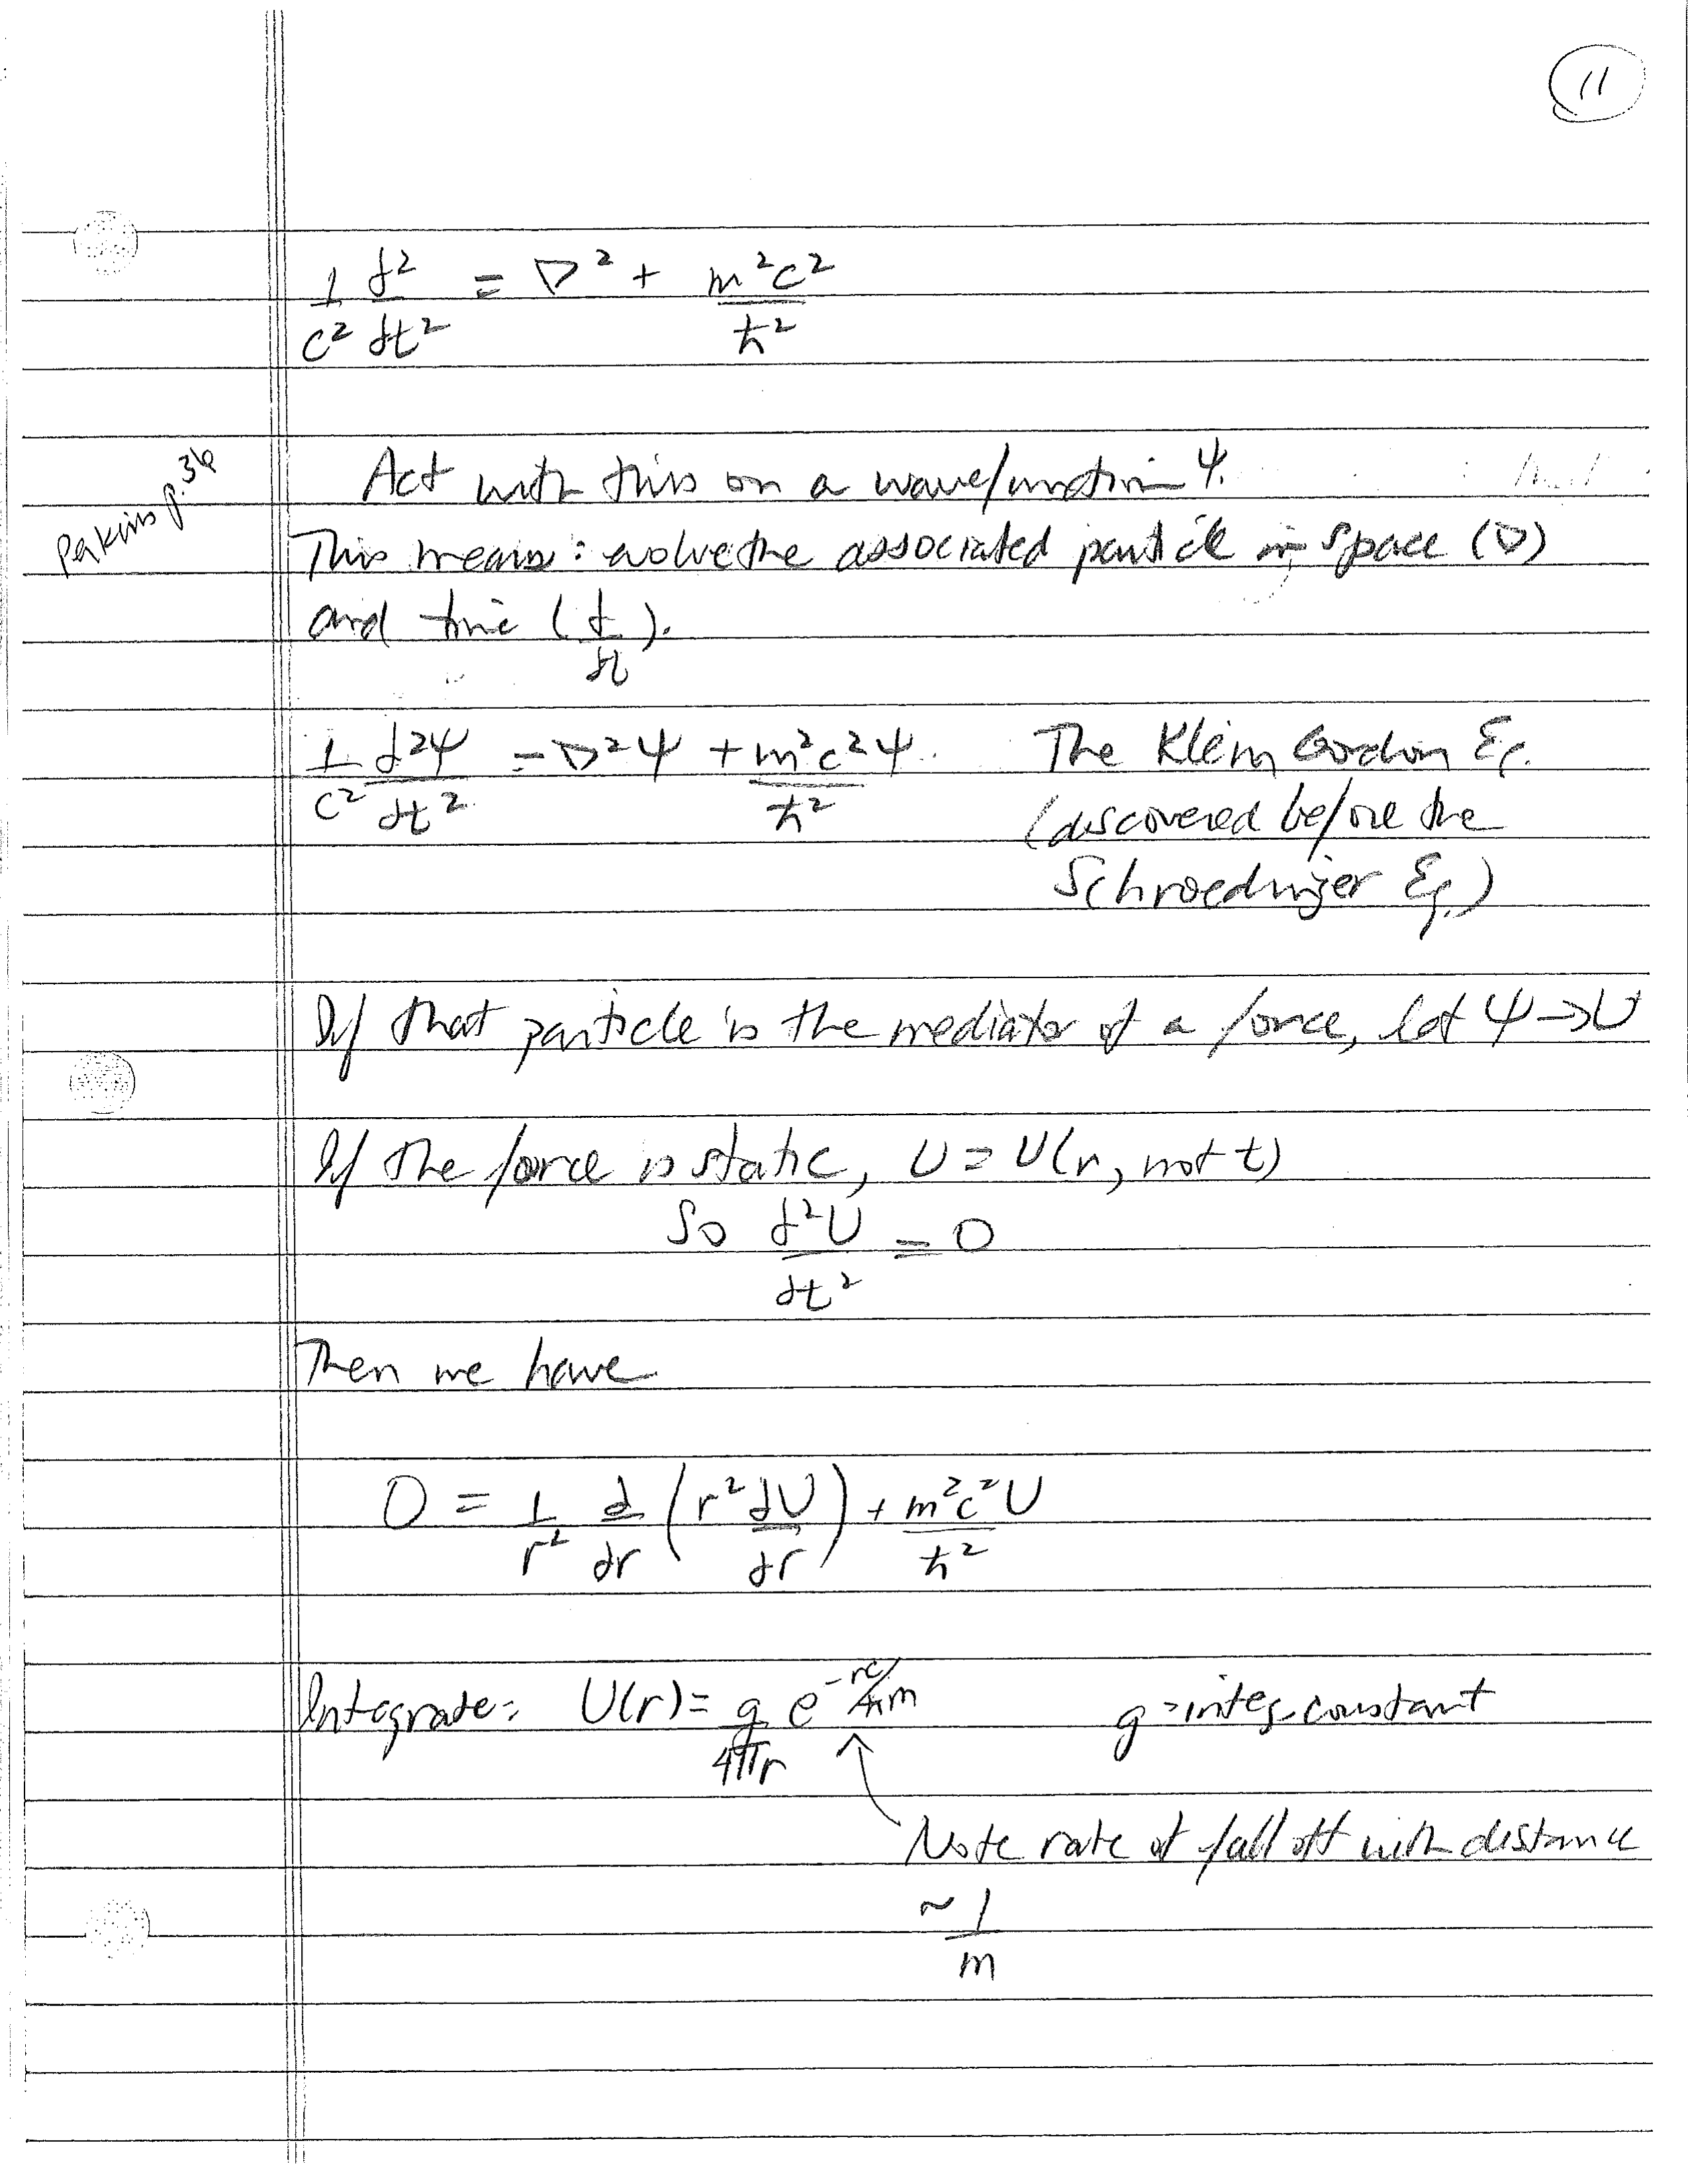 11
1/c² d²/dt² = ∇² + m²c²/ħ²
Perkins p.36
Act with this on a wavefunction ψ.
This means: evolve the associated particle in space (∇)
and time (d/dt).
1/c² d²ψ/dt² = ∇²ψ + m²c²/ħ² ψ. The Klein Gordon Eq.
(discovered before the
Schroedinger Eq.)
If that particle is the mediator of a force, let ψ→U
If the force is static, U = U(r, not t)
So d²U/dt² = 0
Then we have
0 = 1/r² d/dr (r² dU/dr) + m²c²/ħ² U
Integrate: U(r) = g/4πr e^-rc/ħm g = integ. constant
Note rate of fall off with distance
~ 1/m